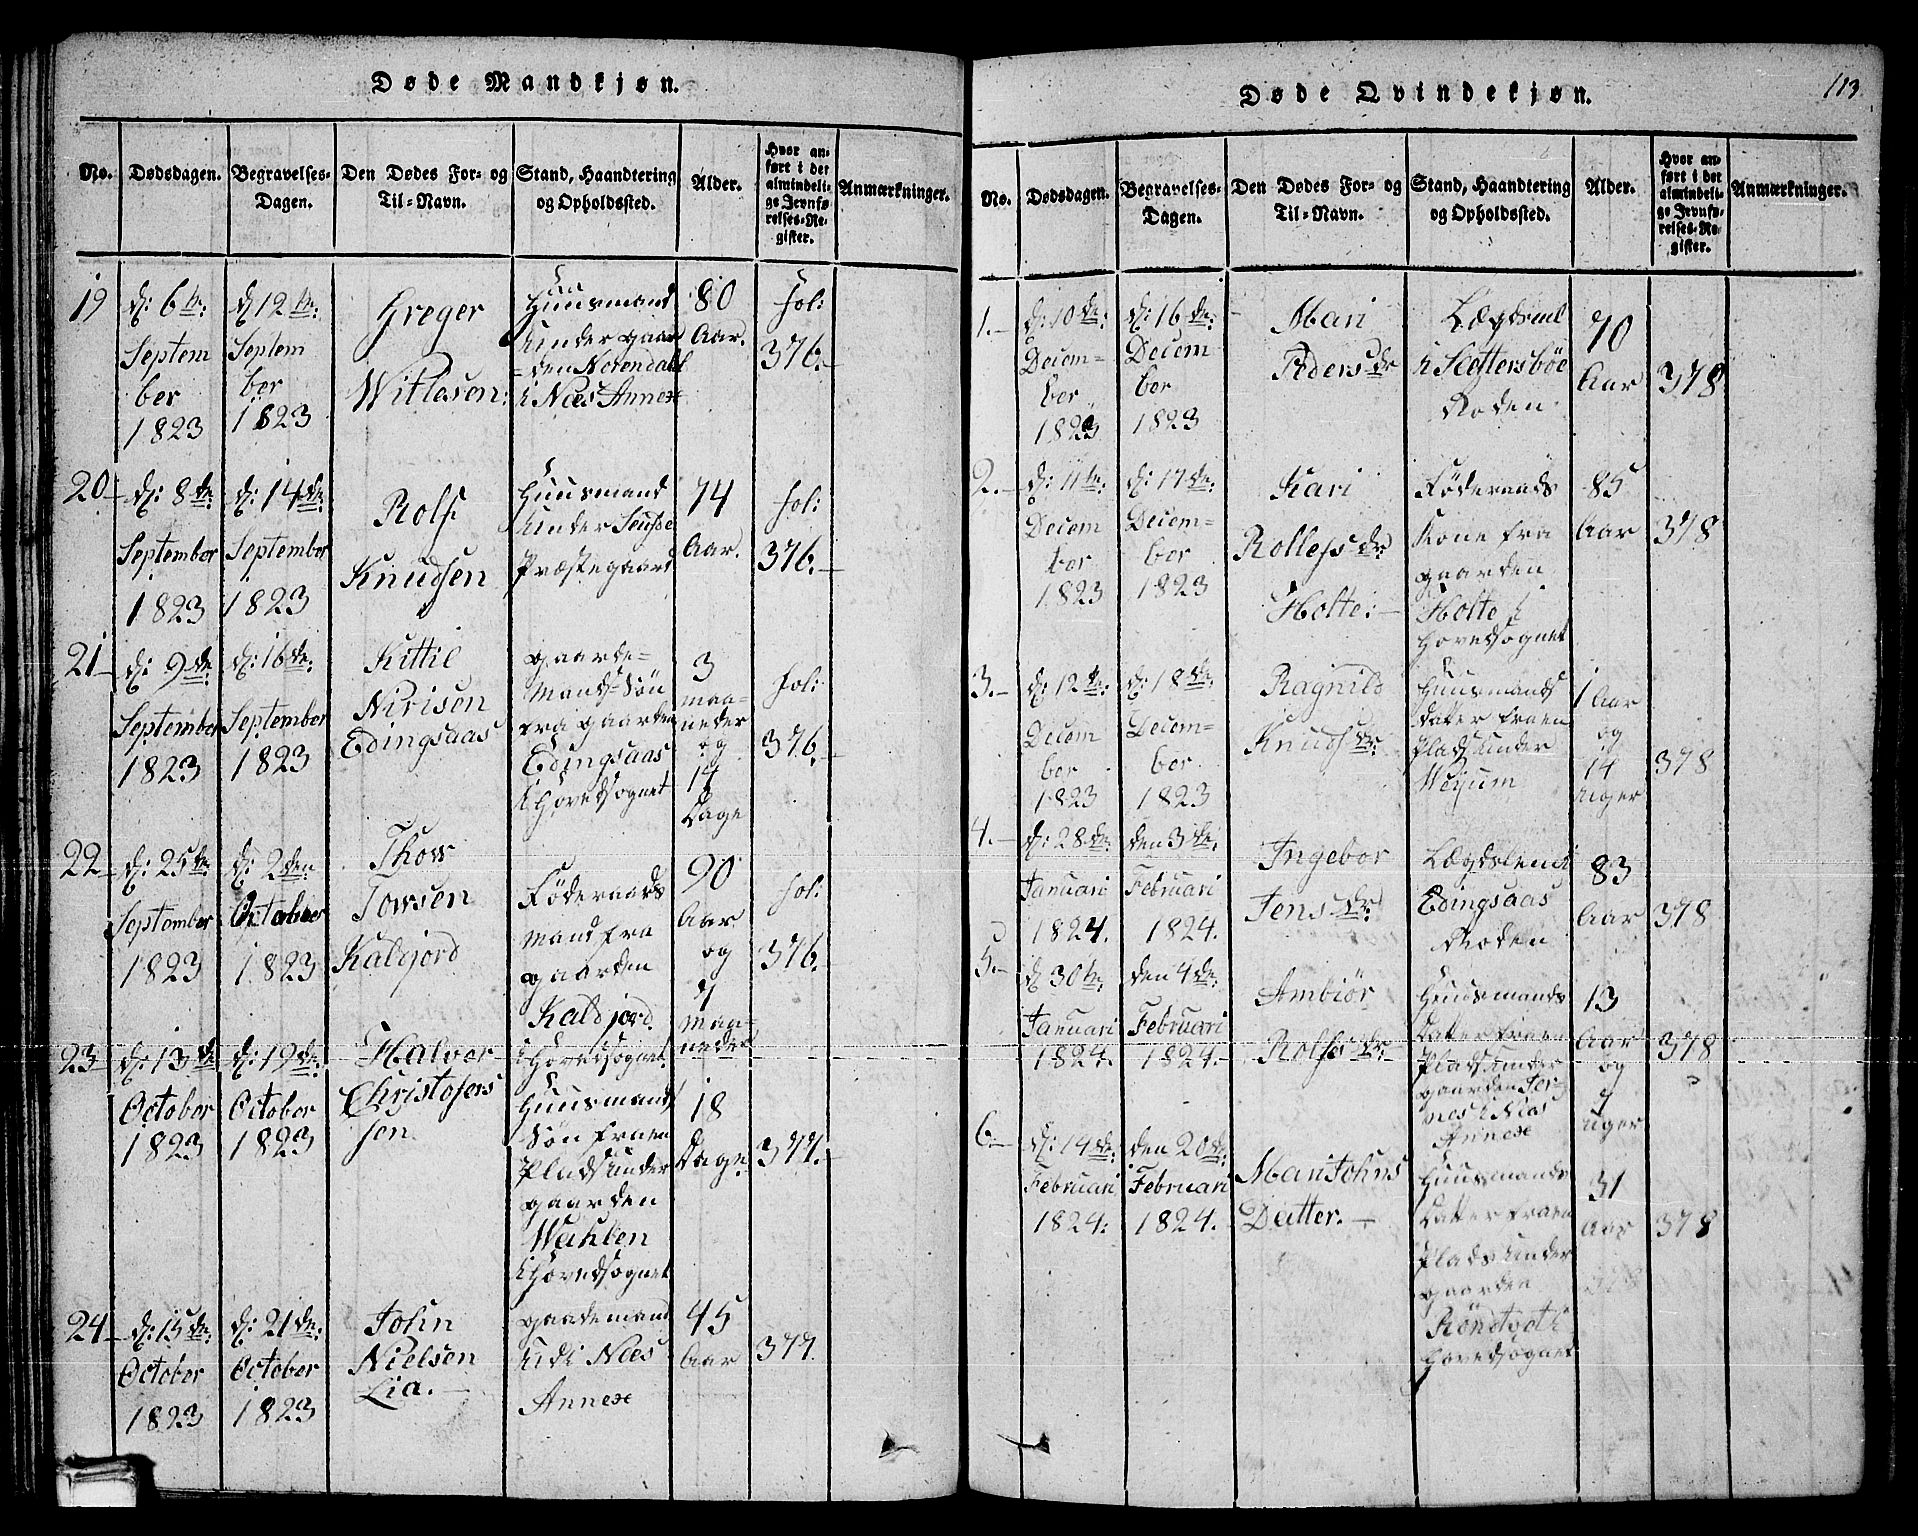 Døde Mandkjøn.
No.
Dødsdagen.
Begravelses-
Dagen.
Den Dødes For- og
Til-Navn.
Stand, Haandtering
og Opholdssted.
Alder.
Hvor an-
ført i det
almindeli-
ge Jevnfø-
relses-Re-
gister.
Anmærkninger.
19
d: 6te:
Septem
ber
1823
d 12te:
Septem
ber
1823
Greger
Witlesen:
Huusmand
under gaar
den Norendahl
i Næs Annex
80
Aar.
fol:
376.
20
d: 8de
September
1823
d: 14de:
September
1823
Rolf
Knudsen
Huusmand
under
Præstegaard
74
Aar.
fol:
376.
21
d: 9de
September
1823
d: 16de:
September
1823
Kittil
Nirisen
Edingsaas
gaarde-
mands Søn
fra gaarden
Edingsaas
i Hovedsognet
3
maa-
neder
og
14
Dage
fol:
376.
22
d: 25de
September
1823
d: 2den
October
1823
Thow
Towsen
Kaldjord
Föderaads
mand fra
gaarden
Kaldjord
i Hovedsognet
90
Aar
og
7
maa-
neder
fol:
376.
23
d: 13de
October
1823
d: 19de:
October
1823
Halvor
Christofers
sen
Huusmands
Sön fra en
Plads under
gaarden
Wahlen
i Hovedsognet
18
Dage
377.
24
d: 15de:
October
1823
d: 21de:
October
1823
John
Nielsen
Lia.
gaardemand
udi Næs
Annex
45
Aar
377.
Døde Qvindekjøn.
113
No.
Dødsdagen.
Begravelses-
Dagen.
Den Dødes For- og
Til-Navn.
Stand, Haandtering
og Opholdssted.
Alder.
Hvor an-
ført i det
almindeli-
ge Jevnfø-
relses-Re-
gister.
Anmærkninger.
1.
d: 10de:
Decem-
ber
1823
d: 16de:
Decem
ber
1823
Mari
Peders dr
i
Roden
70
Aar
378
2.
d: 11te:
Decem
ber
1823
d: 17de:
Decem-
ber
1823
Kari
Rollefs dr
Holte:
Föderaads
Kone fra
gaarden
Holte i
Hovedsognet
85
Aar
378
3.
d: 12te:
Decem
ber
1823
d: 18de:
Decem-
ber
1823
Ragnild
Knuds dr:
Huusmands
datter fra en
Plads under
1 Aar
og
14
uger
378
4.
d: 28de:
Januari
1824.
den 3de:
Februari
1824.
Ingebor
Jens dr:
Lægdslem i
Edingsaas
Roden
83
Aar
378
5.
d 30te:
Januari
1824.
den 4de:
Februari
1824.
Ambiör
Rolfs dr:
Huusmands
Datter fra en
Plads under
gaarden
i Næs
Annex
13
Aar
og
7
uger
378
6.
d: 14de:
Februari
1824:
den 20de:
Februari
1824.
Mari Johns
Datter.
Huusmands
Datter fra en
Plads under
gaarden
i
Hovedsognet
31
Aar
378